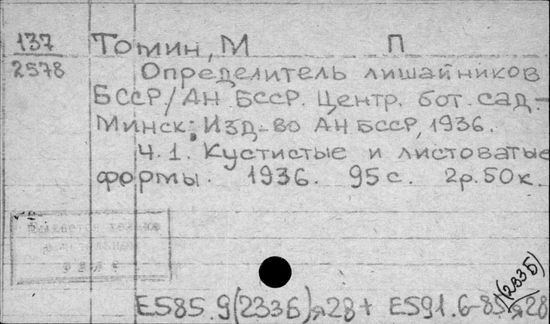 137
2578
Томин, М П
Определитель лишайников
БССР./АН БССР. Центр. бот. сад.–
Минск: Изд-во АН БССР, 1936.
Ч.1. Кустистые и листоватые
формы. 1936. 95 с. 2р.50к.
Е585.9(233Б)я28+ Е591.6-85(233Б)я28